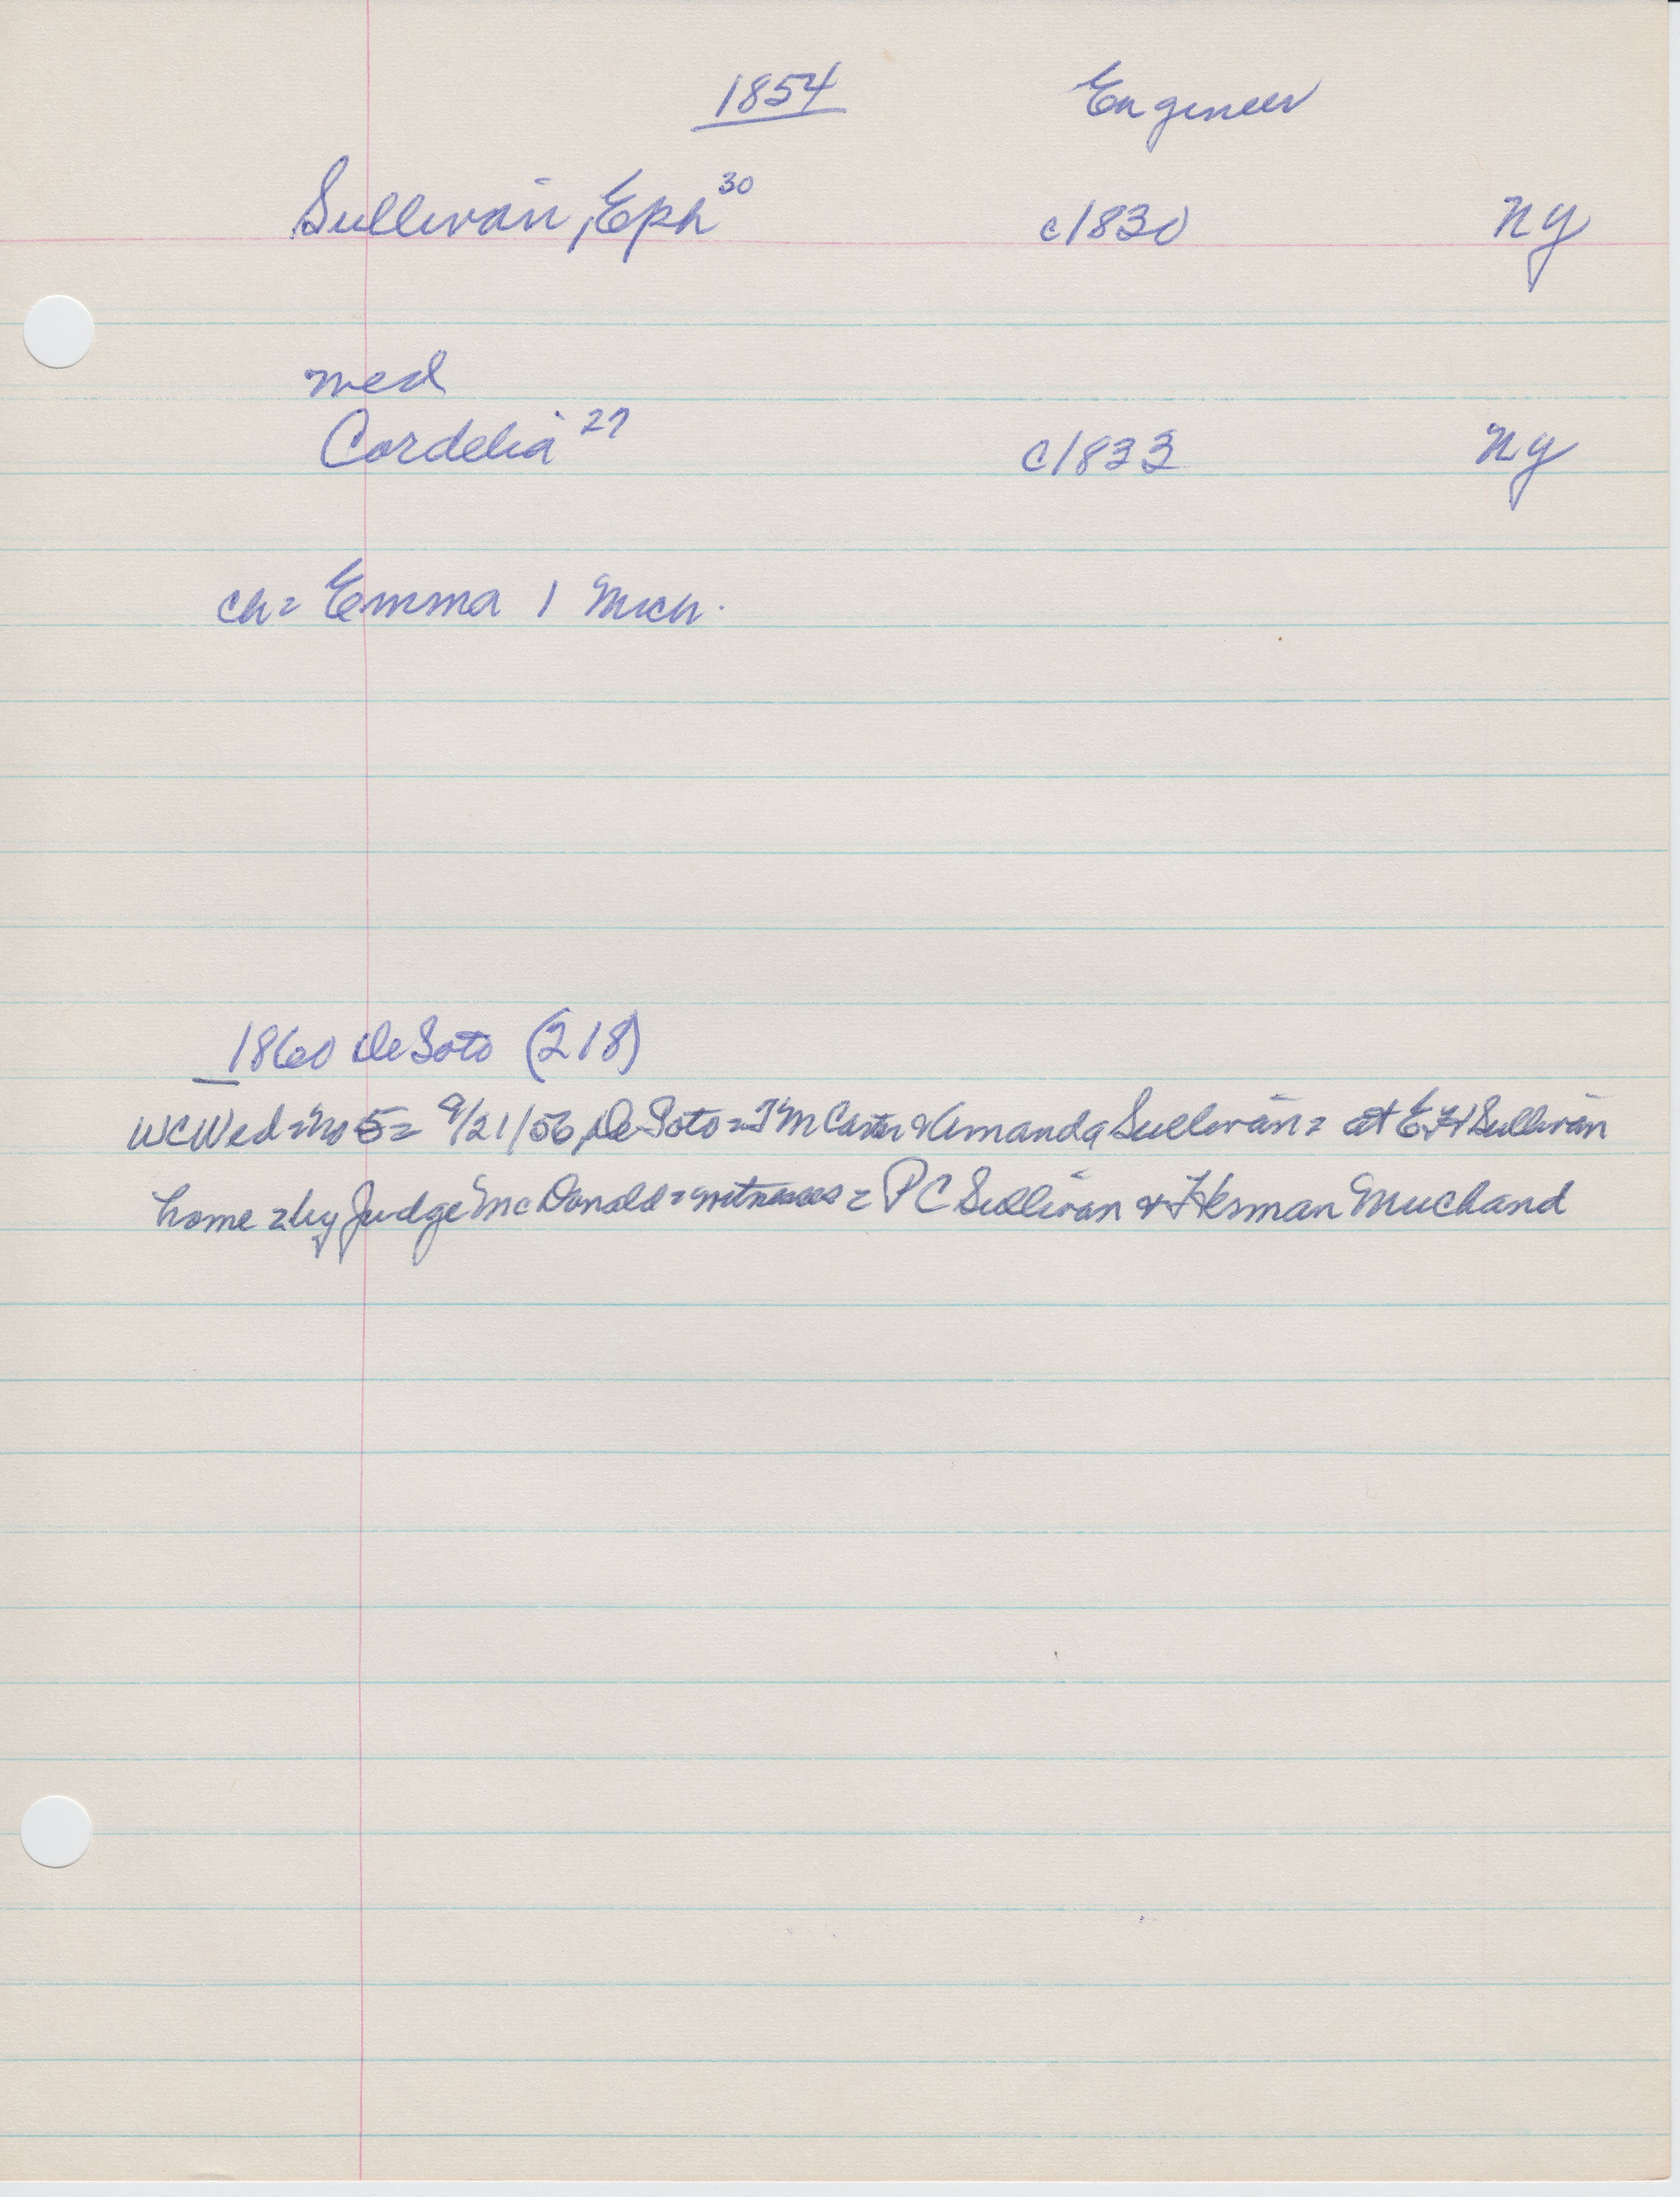 1854 Engineer
Sullivan, Eph 30 c1830 NY
med
Cordelia 27 c1833 NY
ch= Emma 1 Mich.
1860 DeSoto (218)
WCWed=No 5= 9/21/56, DeSoto= T M Carter & Amanda Sullivan= at E H Sullivan
home = by Judge McDonald = witnesses = P C Sullivan & Herman Muchand